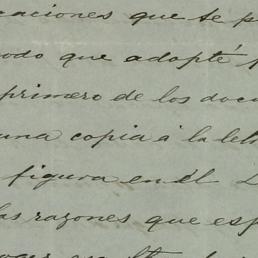 caciones que se p
odo que adopté p
primero de los docu
una copia á la let
figura en el
las razones que esp